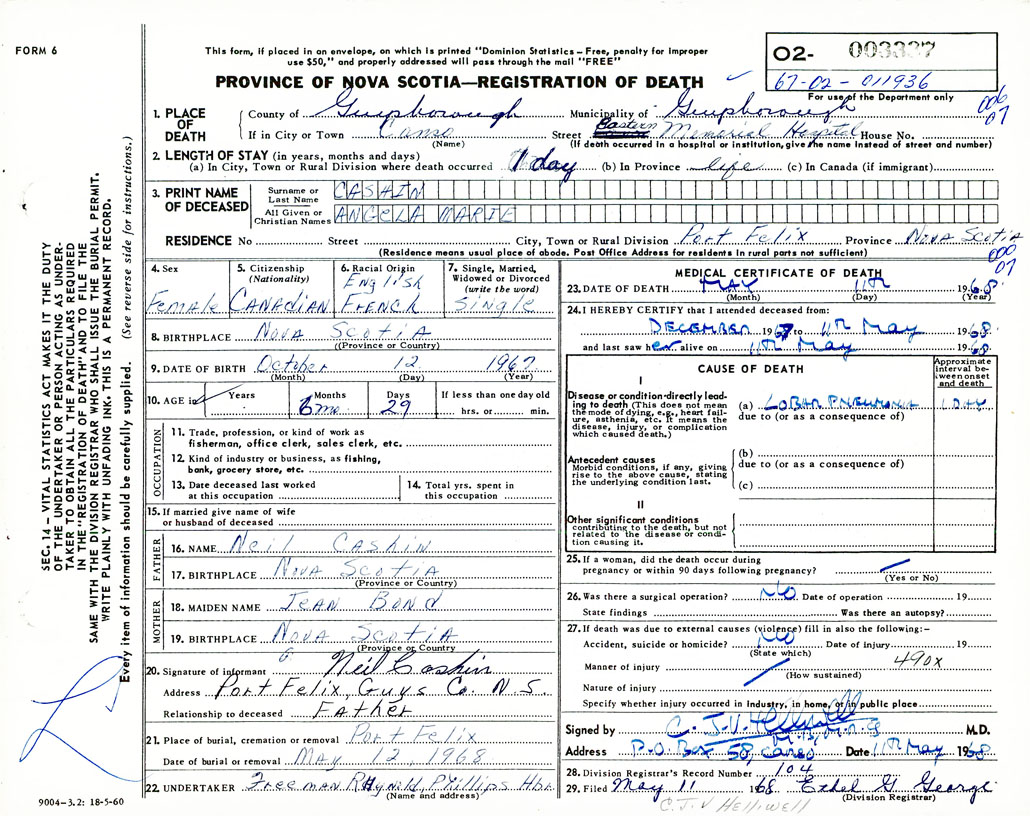 FORM 6
This form, if placed in an envelope, on which is printed "Dominion Statistics – Free, penalty for improper
use $50," and properly addressed will pass through the mail "FREE"
PROVINCE OF NOVA SCOTIA—REGISTRATION OF DEATH
O2- 003337
67-02-011936
For use of the Department only
006
07
1. PLACE OF DEATH
County of Guysborough Municipality of Guysborough
If in City or Town Canso Street Eastern Memorial Hospital House No.
(Name) (If death occurred in a hospital or institution, give the name instead of street and number)
2. LENGTH OF STAY (in years, months and days)
(a) In City, Town or Rural Division where death occurred 1 day (b) In Province life (c) In Canada (if immigrant)
3. PRINT NAME OF DECEASED
Surname or Last Name CASHIN
All Given or Christian Names ANGELA MARIE
RESIDENCE No Street City, Town or Rural Division Port Felix Province Nova Scotia
(Residence means usual place of abode. Post Office Address for residents in rural parts not sufficient)
000
07
4. Sex Female
5. Citizenship (Nationality) CANADIAN
6. Racial Origin English FRENCH
7. Single, Married, Widowed or Divorced (write the word) Single
8. BIRTHPLACE NOVA SCOTIA
(Province or Country)
9. DATE OF BIRTH October 12 1967
(Month) (Day) (Year)
10. AGE in Years Months Days If less than one day old
6 mo 29 hrs. or min.
OCCUPATION
11. Trade, profession, or kind of work as
fisherman, office clerk, sales clerk, etc.
12. Kind of industry or business, as fishing,
bank, grocery store, etc.
13. Date deceased last worked
at this occupation
14. Total yrs. spent in
this occupation
15. If married give name of wife
or husband of deceased
FATHER
16. NAME Neil Cashin
17. BIRTHPLACE NOVA SCOTIA
(Province or Country)
MOTHER
18. MAIDEN NAME JEAN BOND
19. BIRTHPLACE NOVA SCOTIA
(Province or Country)
20. Signature of informant Neil Cashin
Address Port Felix, Guys Co. N.S.
Relationship to deceased FATHER
21. Place of burial, cremation or removal Port Felix
Date of burial or removal MAY 12, 1968
22. UNDERTAKER Freeman Reynold, Phillips Hbr.
(Name and address)
MEDICAL CERTIFICATE OF DEATH
23. DATE OF DEATH MAY 11th 1968
(Month) (Day) (Year)
24. I HEREBY CERTIFY that I attended deceased from:
DECEMBER 1967 to 11th May 1968
and last saw her alive on 11th May 1968
CAUSE OF DEATH
Approximate interval between onset and death
I
Disease or condition directly leading to death (This does not mean the mode of dying, e.g., heart failure, asthenia, etc. It means the disease, injury, or complication which caused death.)
(a) LOBAR PNEUMONIA 1 DAY
due to (or as a consequence of)
Antecedent causes
Morbid conditions, if any, giving rise to the above cause, stating the underlying condition last.
(b)
due to (or as a consequence of)
(c)
II
Other significant conditions
contributing to the death, but not related to the disease or condition causing it.
25. If a woman, did the death occur during
pregnancy or within 90 days following pregnancy?
(Yes or No)
26. Was there a surgical operation? No Date of operation 19
State findings Was there an autopsy?
27. If death was due to external causes (violence) fill in also the following:–
Accident, suicide or homicide? No Date of injury 19
(State which)
Manner of injury 490X
(How sustained)
Nature of injury
Specify whether injury occurred in Industry, in home, or in public place
Signed by C. J.V. Helliwell M.D.
Address P.O. Box 58, Canso Date 11th May 1968
28. Division Registrar's Record Number 104
29. Filed May 11 1968 Ethel G George
(Division Registrar)
C.J.V HELLIWELL
SEC. 14 – VITAL STATISTICS ACT MAKES IT THE DUTY
OF THE UNDERTAKER OR PERSON ACTING AS UNDER-
TAKER TO OBTAIN ALL THE PARTICULARS REQUIRED
IN THE "REGISTRATION OF DEATH" AND TO FILE THE
SAME WITH THE DIVISION REGISTRAR WHO SHALL ISSUE THE BURIAL PERMIT.
WRITE PLAINLY WITH UNFADING INK. THIS IS A PERMANENT RECORD.
Every item of information should be carefully supplied. (See reverse side for instructions.)
9004-3.2: 18-5-60